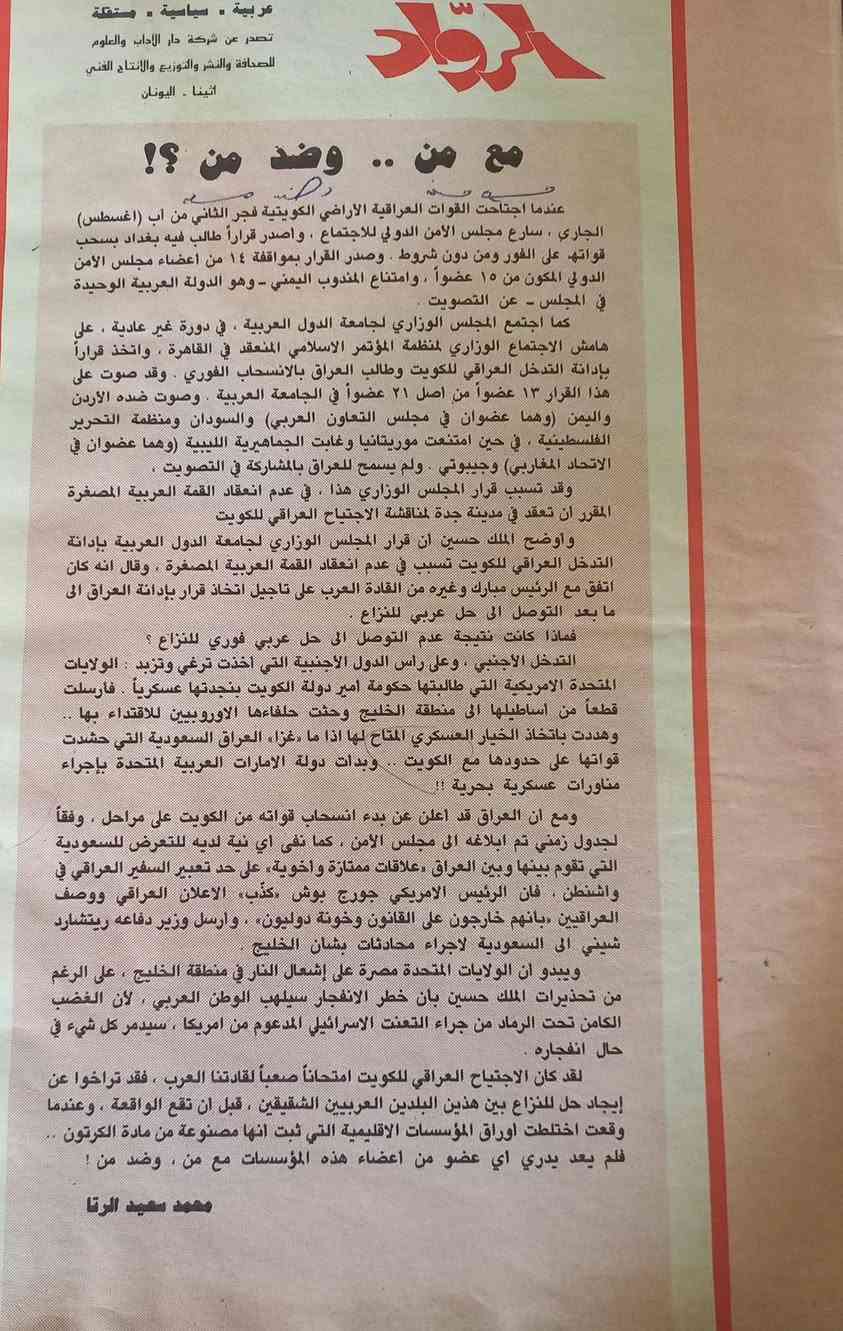 الروّاد
عربية . سياسية . مستقلة
تصدر عن شركة دار الآداب والعلوم
للصحافة والنشر والتوزيع والانتاج الفني
اثينا . اليونان
مع من .. وضد من ؟!
عندما اجتاحت القوات العراقية الاراضي الكويتية فجر الثاني من آب (اغسطس)
الجاري ، سارع مجلس الأمن الدولي للاجتماع ، واصدر قراراً طالب فيه بغداد بسحب
قواتها على الفور ومن دون شروط . وصدر القرار بموافقة ١٤ من أعضاء مجلس الأمن
الدولي المكون من ١٥ عضواً ، وامتناع المندوب اليمني ــ وهو الدولة العربية الوحيدة
في المجلس ــ عن التصويت .
كما اجتمع المجلس الوزاري لجامعة الدول العربية ، في دورة غير عادية ، على
هامش الاجتماع الوزاري لمنظمة المؤتمر الاسلامي المنعقد في القاهرة ، واتخذ قراراً
بإدانة التدخل العراقي للكويت وطالب العراق بالانسحاب الفوري . وقد صوت على
هذا القرار ١٣ عضواً من أصل ٢١ عضواً في الجامعة العربية . وصوت ضده الأردن
واليمن (وهما عضوان في مجلس التعاون العربي) والسودان ومنظمة التحرير
الفلسطينية ، في حين امتنعت موريتانيا وغابت الجماهيرية الليبية (وهما عضوان في
الاتحاد المغاربي) وجيبوتي . ولم يسمح للعراق بالمشاركة في التصويت ،
وقد تسبب قرار المجلس الوزاري هذا ، في عدم انعقاد القمة العربية المصغرة
المقرر أن تعقد في مدينة جدة لمناقشة الاجتياح العراقي للكويت
وأوضح الملك حسين أن قرار المجلس الوزاري لجامعة الدول العربية بإدانة
التدخل العراقي للكويت تسبب في عدم انعقاد القمة العربية المصغرة ، وقال انه كان
اتفق مع الرئيس مبارك وغيره من القادة العرب على تأجيل اتخاذ قرار بإدانة العراق الى
ما بعد التوصل الى حل عربي للنزاع .
فماذا كانت نتيجة عدم التوصل الى حل عربي فوري للنزاع ؟
التدخل الأجنبي ، وعلى رأس الدول الأجنبية التي أخذت ترغي وتزبد : الولايات
المتحدة الامريكية التي طالبتها حكومة أمير دولة الكويت بنجدتها عسكرياً . فأرسلت
قطعاً من أساطيلها الى منطقة الخليج وحثت حلفاءها الاوروبيين للاقتداء بها ..
وهددت باتخاذ الخيار العسكري المتاح لها اذا ما «غزا» العراق السعودية التي حشدت
قواتها على حدودها مع الكويت .. وبدأت دولة الامارات العربية المتحدة بإجراء
مناورات عسكرية بحرية !!
ومع أن العراق قد أعلن عن بدء انسحاب قواته من الكويت على مراحل ، وفقاً
لجدول زمني تم ابلاغه الى مجلس الأمن ، كما نفى أي نية لديه للتعرض للسعودية
التي تقوم بينها وبين العراق «علاقات ممتازة وأخوية» على حد تعبير السفير العراقي في
واشنطن ، فان الرئيس الامريكي جورج بوش «كذّب» الاعلان العراقي ووصف
العراقيين «بأنهم خارجون على القانون وخونة دوليون» ، وأرسل وزير دفاعه ريتشارد
شيني الى السعودية لاجراء محادثات بشأن الخليج .
ويبدو أن الولايات المتحدة مصرة على إشعال النار في منطقة الخليج ، على الرغم
من تحذيرات الملك حسين بأن خطر الانفجار سيلهب الوطن العربي ، لأن الغضب
الكامن تحت الرماد من جراء التعنت الاسرائيلي المدعوم من امريكا ، سيدمر كل شيء في
حال انفجاره .
لقد كان الاجتياح العراقي للكويت امتحاناً صعباً لقادتنا العرب ، فقد تراخوا عن
إيجاد حل للنزاع بين هذين البلدين العربيين الشقيقين ، قبل أن تقع الواقعة ، وعندما
وقعت اختلطت أوراق المؤسسات الاقليمية التي ثبت أنها مصنوعة من مادة الكرتون ..
فلم يعد يدري أي عضو من أعضاء هذه المؤسسات مع من ، وضد من !
محمد سعيد الرتا